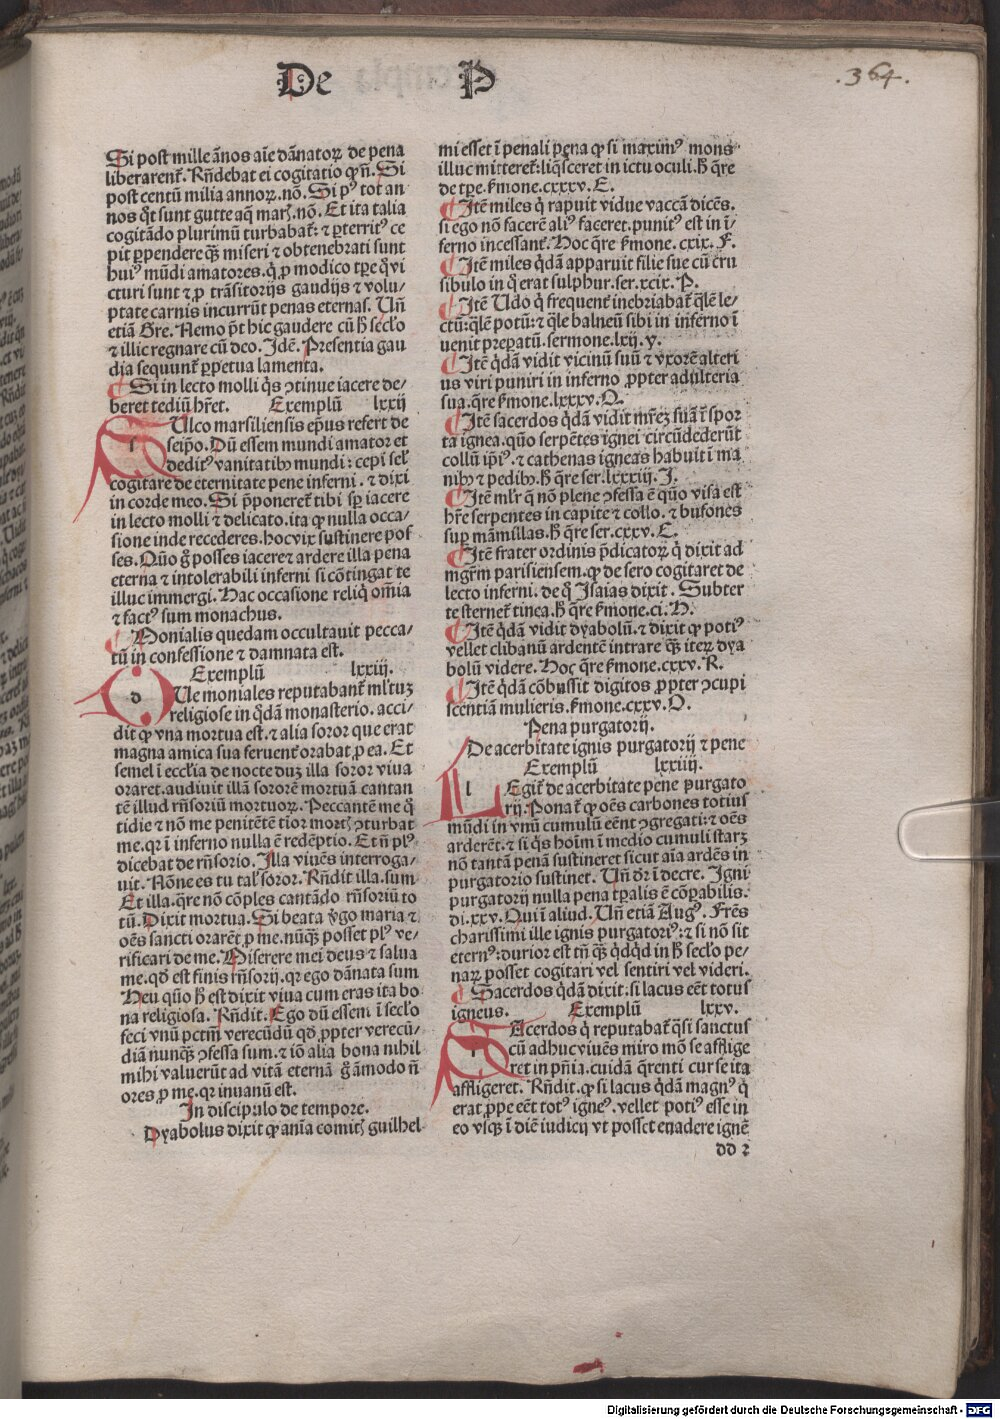 De P
.364.
Si post mille ãnos aĩe dãnatoꝝ de pena
liberarent᷑. Rñdebat ei cogitatio ꝙ ñ. Si
post centũ milia annoꝝ. nõ. Si pꝰ tot an
nos q̃t sunt gutte aq̃ marꝭ. nõ. Et ita talia
cogitãdo plurimũ turbabat᷑: ⁊ ꝑterritꝰ ce
pit ꝑpendere qꝫ miseri ⁊ obtenebrati sunt
huiꝰ mũdi amatores. q̃ ꝓ modico tꝑe q̃i vi
cturi sunt ⁊ ꝓ trãsitorijs gaudijs ⁊ volu⸗
ptate carnis incurrũt penas eternas. Uñ
etiã Gre. Nemo põt hic gaudere cũ h̃ sec̃lo
⁊ illic regnare cũ deo. Idẽ. Presentia gau
dia sequunt᷑ ꝑpetua lamenta.
Si in lecto molli q̃s ↄtinue iacere de⸗
beret tediũ hr̃et. Exemplũ lxxij
f Ulco marsiliensis ep̃us refert de
seip̃o. Dũ essem mundi amator et
deditꝰ vanitatibꝫ mundi: cepi sel̃
cogitare de eternitate pene inferni. ⁊ dixi
in corde meo. Si p̃poneret᷑ tibi sꝑ iacere
in lecto molli ⁊ delicato. ita ꝙ nulla occa⸗
sione inde recederes. hoc vix sustinere pos
ses. Quõ g̃ posses iacere ⁊ ardere illa pena
eterna ⁊ intolerabili inferni si cõtingat te
illuc immergi. Hac occasione reliq̃ om̃ia
⁊ factꝰ sum monachus.
Monialis quedam occultauit pecca⸗
tũ in confessione ⁊ damnata est.
Exemplũ lxxiij.
d Ue moniales reputabant᷑ ml̃tuꝫ
religiose in q̃dã monasterio. acci⸗
dit ꝙ vna mortua est. ⁊ alia soror que erat
magna amica sua feruent᷑ orabat ꝓ ea. Et
semel ĩ eccl̃ia de nocte duꝫ illa soror viua
oraret. audiuit illã sororẽ mortuã cantan
tẽ illud rñsoriũ mortuoꝝ. Peccantẽ me q̃
tidie ⁊ nõ me penitẽtẽ tior mortꝭ ↄturbat
me. qꝛ ĩ inferno nulla ẽ redẽptio. Et ñ plꝰ
dicebat de rñsorio. Illa viuẽs interroga⸗
uit. Nõne es tu tal̃ soror. Rñdit illa. sum
Et illa. q̃re nõ cõples cantãdo rñsoriũ to
tũ. Dixit mortua. Si beata ṽgo maria ⁊
oẽs sancti orarẽt ꝓ me. nũqꝫ posset plꝰ ve⸗
rificari de me. Miserere mei deus ⁊ salua
me. qd̃ est finis rñsorij. qꝛ ego dãnata sum
Heu quõ h̃ est dixit viua cum eras ita bo⸗
na religiosa. Rñdit. Ego dũ essem ĩ sec̃lo
feci vnũ pctm̃ verecũdũ qd̃ ꝓpter verecũ⸗
diã nunqꝫ ↄfessa sum. ⁊ iõ alia bona nihil
mihi valuerũt ad vitã eternã g̃ ãmodo ñ
ores ꝓ me. qꝛ in vanũ est.
In discipulo de tempore.
Dyabolus dixit ꝙ aĩa comitꝭ guilhel
mi esset ĩ penali pena ꝙ si maximꝰ mons
illuc mitteret᷑: liq̃sceret in ictu oculi. h̃ q̃re
de tꝑe. ẜmone. cxxxv. E.
Itẽ miles q̃ rapuit vidue vaccã dicẽs.
si ego nõ facerẽ aliꝰ faceret. punitꝰ est in ĩ⸗
ferno incessant᷑. Hoc q̃re ẜmone. cxix. F.
Itẽ miles q̃dã apparuit filie sue cũ cru
sibulo in q̃ erat sulphur. ser. xcix. P.
Itẽ Udo q̃ frequent᷑ inebriabat᷑ q̃lẽ le⸗
ctũ: q̃lẽ potũ: ⁊ q̃le balneũ sibi in inferno ĩ
uenit preparatũ. sermone. lxij. y.
Itẽ q̃dã vidit vicinũ suũ ⁊ vxorẽ alteri
us viri puniri in inferno ꝓpter adulteria
sua. q̃re ẜmone. lxxx. v. O.
Itẽ sacerdos q̃dã vidit mr̃eꝫ suã ĩ spor
ta ignea. quõ serpẽtes ignei circũdederũt
collũ ip̃iꝰ. ⁊ cathenas igneas habuit ĩ ma
nibꝫ ⁊ pedibꝫ. h̃ q̃re ser. lxxxiij. I.
Itẽ ml̃r q̃ nõ plene ↄfessa ẽ quõ visa est
hr̃e serpentes in capite ⁊ collo. ⁊ bufones
suꝑ mãmillas. h̃ q̃re ser. cxxv. E.
Itẽ frater ordinis p̃dicatoꝝ q̃ dixit ad
mgr̃m parisiensem. ꝙ de sero cogitaret de
lecto inferni. de q̃ Isaias dixit. Subter
te sternet᷑ tinea. h̃ q̃re ẜmone. ci. H.
Itẽ q̃dã vidit dyabolũ. ⁊ dixit ꝙ potiꝰ
vellet clibanũ ardentẽ intrare qꝫ iteꝝ dya
bolũ videre. Hoc q̃re ẜmone. cxxv. R.
Itẽ q̃dã cõbussit digitos ꝓpter ↄcupi
scentiã mulieris. ẜmone. cxxv. O.
Pena purgatorij.
De acerbitate ignis purgatorij ⁊ pene
Exemplũ lxxiiij.
l Egit᷑ de acerbitate pene purgato
rij. Ponat᷑ ꝙ oẽs carbones totius
mũdi in vnũ cumulũ eẽnt ↄgregati: ⁊ oẽs
arderẽt. ⁊ si q̃s hoĩm ĩ medio cumuli staꝝ
nõ tantã penã sustineret sicut aĩa ardẽs in
purgatorio sustinet. Uñ dr̃ ĩ decre. Igni
purgatorij nulla pena tꝑalis ẽ cõparabilis.
di. xxv. Qui ĩ aliud. Uñ etiã Augꝰ. Frẽs
charissimi ille ignis purgatoriꝰ: ⁊ si nõ sit
eternꝰ: durior est tñ qꝫ q̃dqd in h̃ sec̃lo pe⸗
naꝝ posset cogitari vel sentiri vel videri.
Sacerdos q̃dã dixit. si lacus eẽt totus
igneus. Exemplũ lxxv.
s Acerdos q̃ reputabat᷑ q̃si sanctus
cũ adhuc viuẽs miro mõ se afflige
ret in pñia. cuidã q̃renti cur se ita
affligeret. Rñdit. ꝙ si lacus q̃dã magnꝰ q̃
erat ꝓpe eẽt totꝰ igneꝰ. vellet potiꝰ esse in
eo vsqꝫ ĩ diẽ iudicij vt posset euadere ignẽ
dd 2
Digitalisierung gefördert durch die Deutsche Forschungsgemeinschaft - DFG